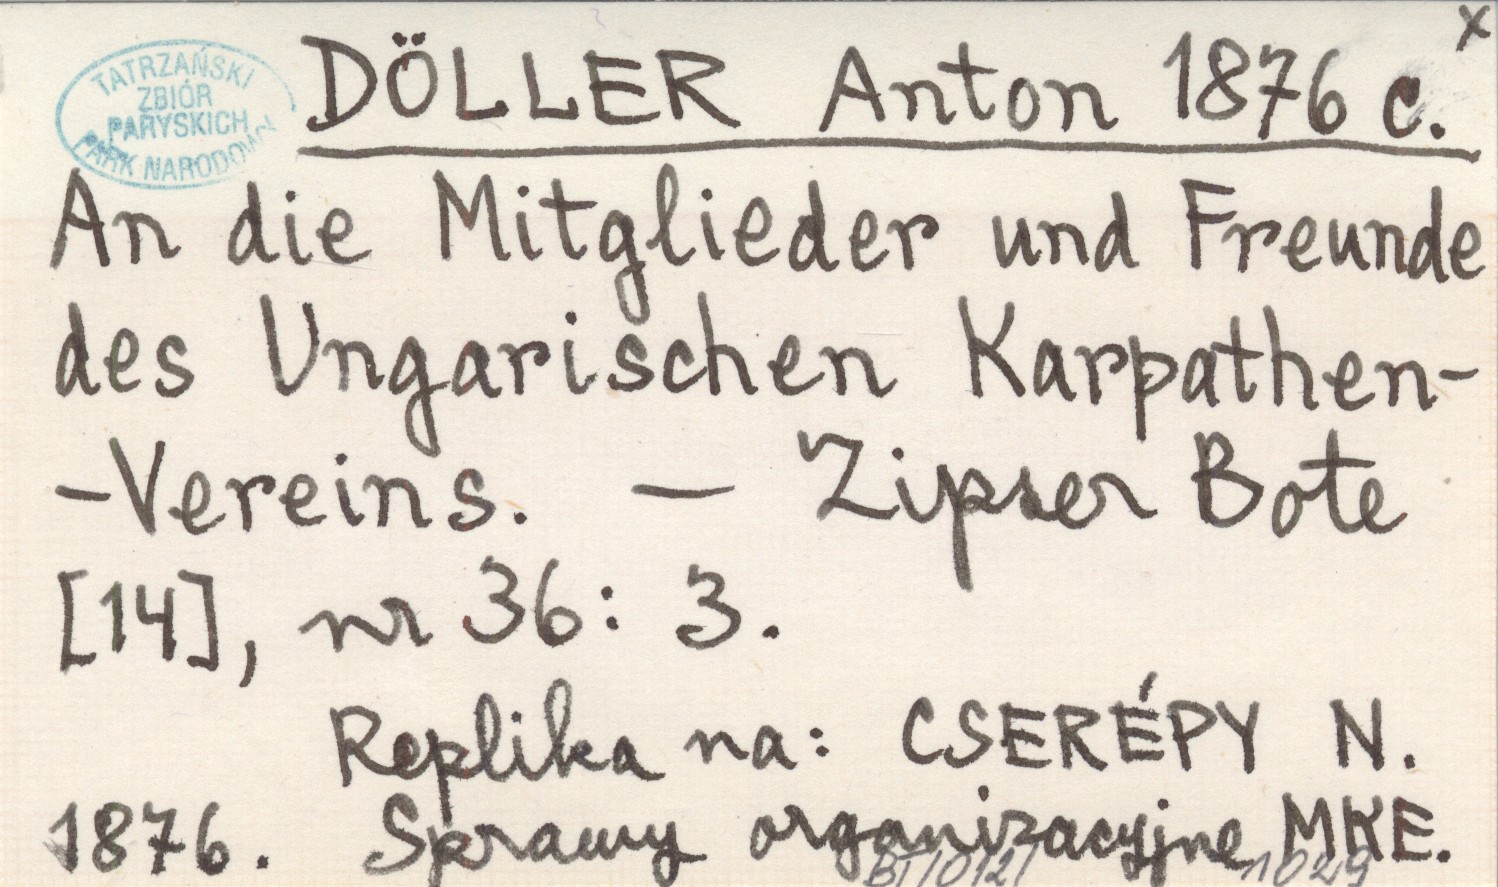 x
TATRZAŃSKI
ZBIÓR
PARYSKICH
PARK NARODOWY
DÖLLER Anton 1876 c.
An die Mitglieder und Freunde
des Ungarischen Karpathen-
-Vereins. — Zipser Bote
[14], nr 36: 3.
Replika na: CSERÉPY N.
1876. Sprawy organizacyjne MKE.
BT/012/ 1029